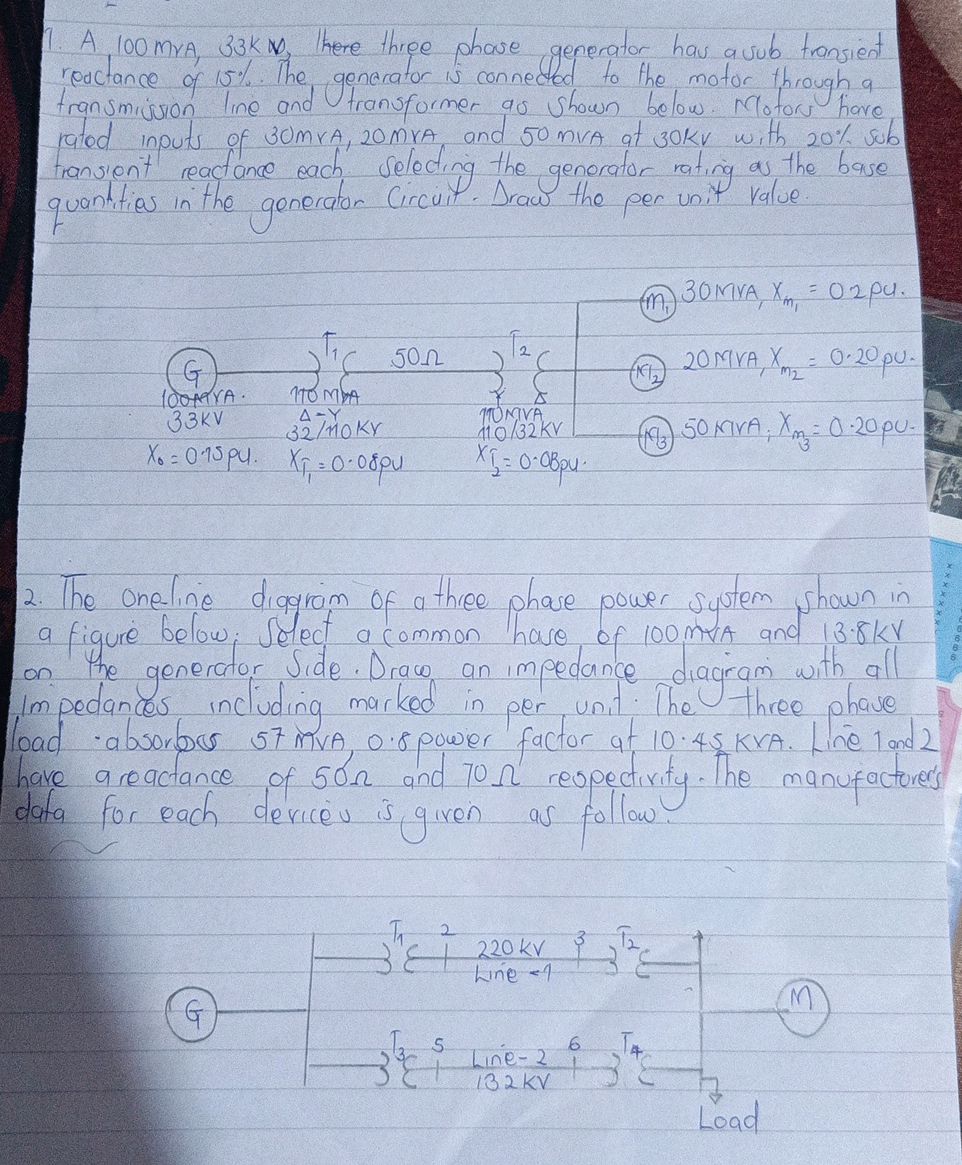 1. A 100 mVA, 33KV, There three phase generator has a sub transient
reactance of 15%. The generator is connected to the motor through a
transmission line and transformer as shown below. Motors have
rated inputs of 30mVA, 20mVA and 50 mVA at 30KV with 20% sub
transient reactance each. Selecting the generator rating as the base
quantities in the generator Circuit. Draw the per unit value.
M1 30MVA, Xm1 = 0.2pu.
G T1 50Ω T2 M2 20MVA, Xm2 = 0.20pu.
100MVA. 110MVA 110MVA M3 50MVA, Xm3 = 0.20pu.
33KV Δ-Y 32/110KV Y Δ 110/32KV
X0 = 0.15pu. XT1 = 0.08pu XT2 = 0.08pu.
2. The oneline diagram of a three phase power system shown in
a figure below. Select a common base of 100mVA and 13.8KV
on the generator side. Draw an impedance diagram with all
impedances including marked in per unit. The three phase
load absorbs 57 mVA, 0.8 power factor at 10.45 KVA. Line 1 and 2
have a reactance of 50Ω and 70Ω respectivity. The manufacturer's
data for each devices is given as follow.
T1 2 220KV 3 T2
Line -1
G M
T3 5 Line-2 6 T4
132KV
Load